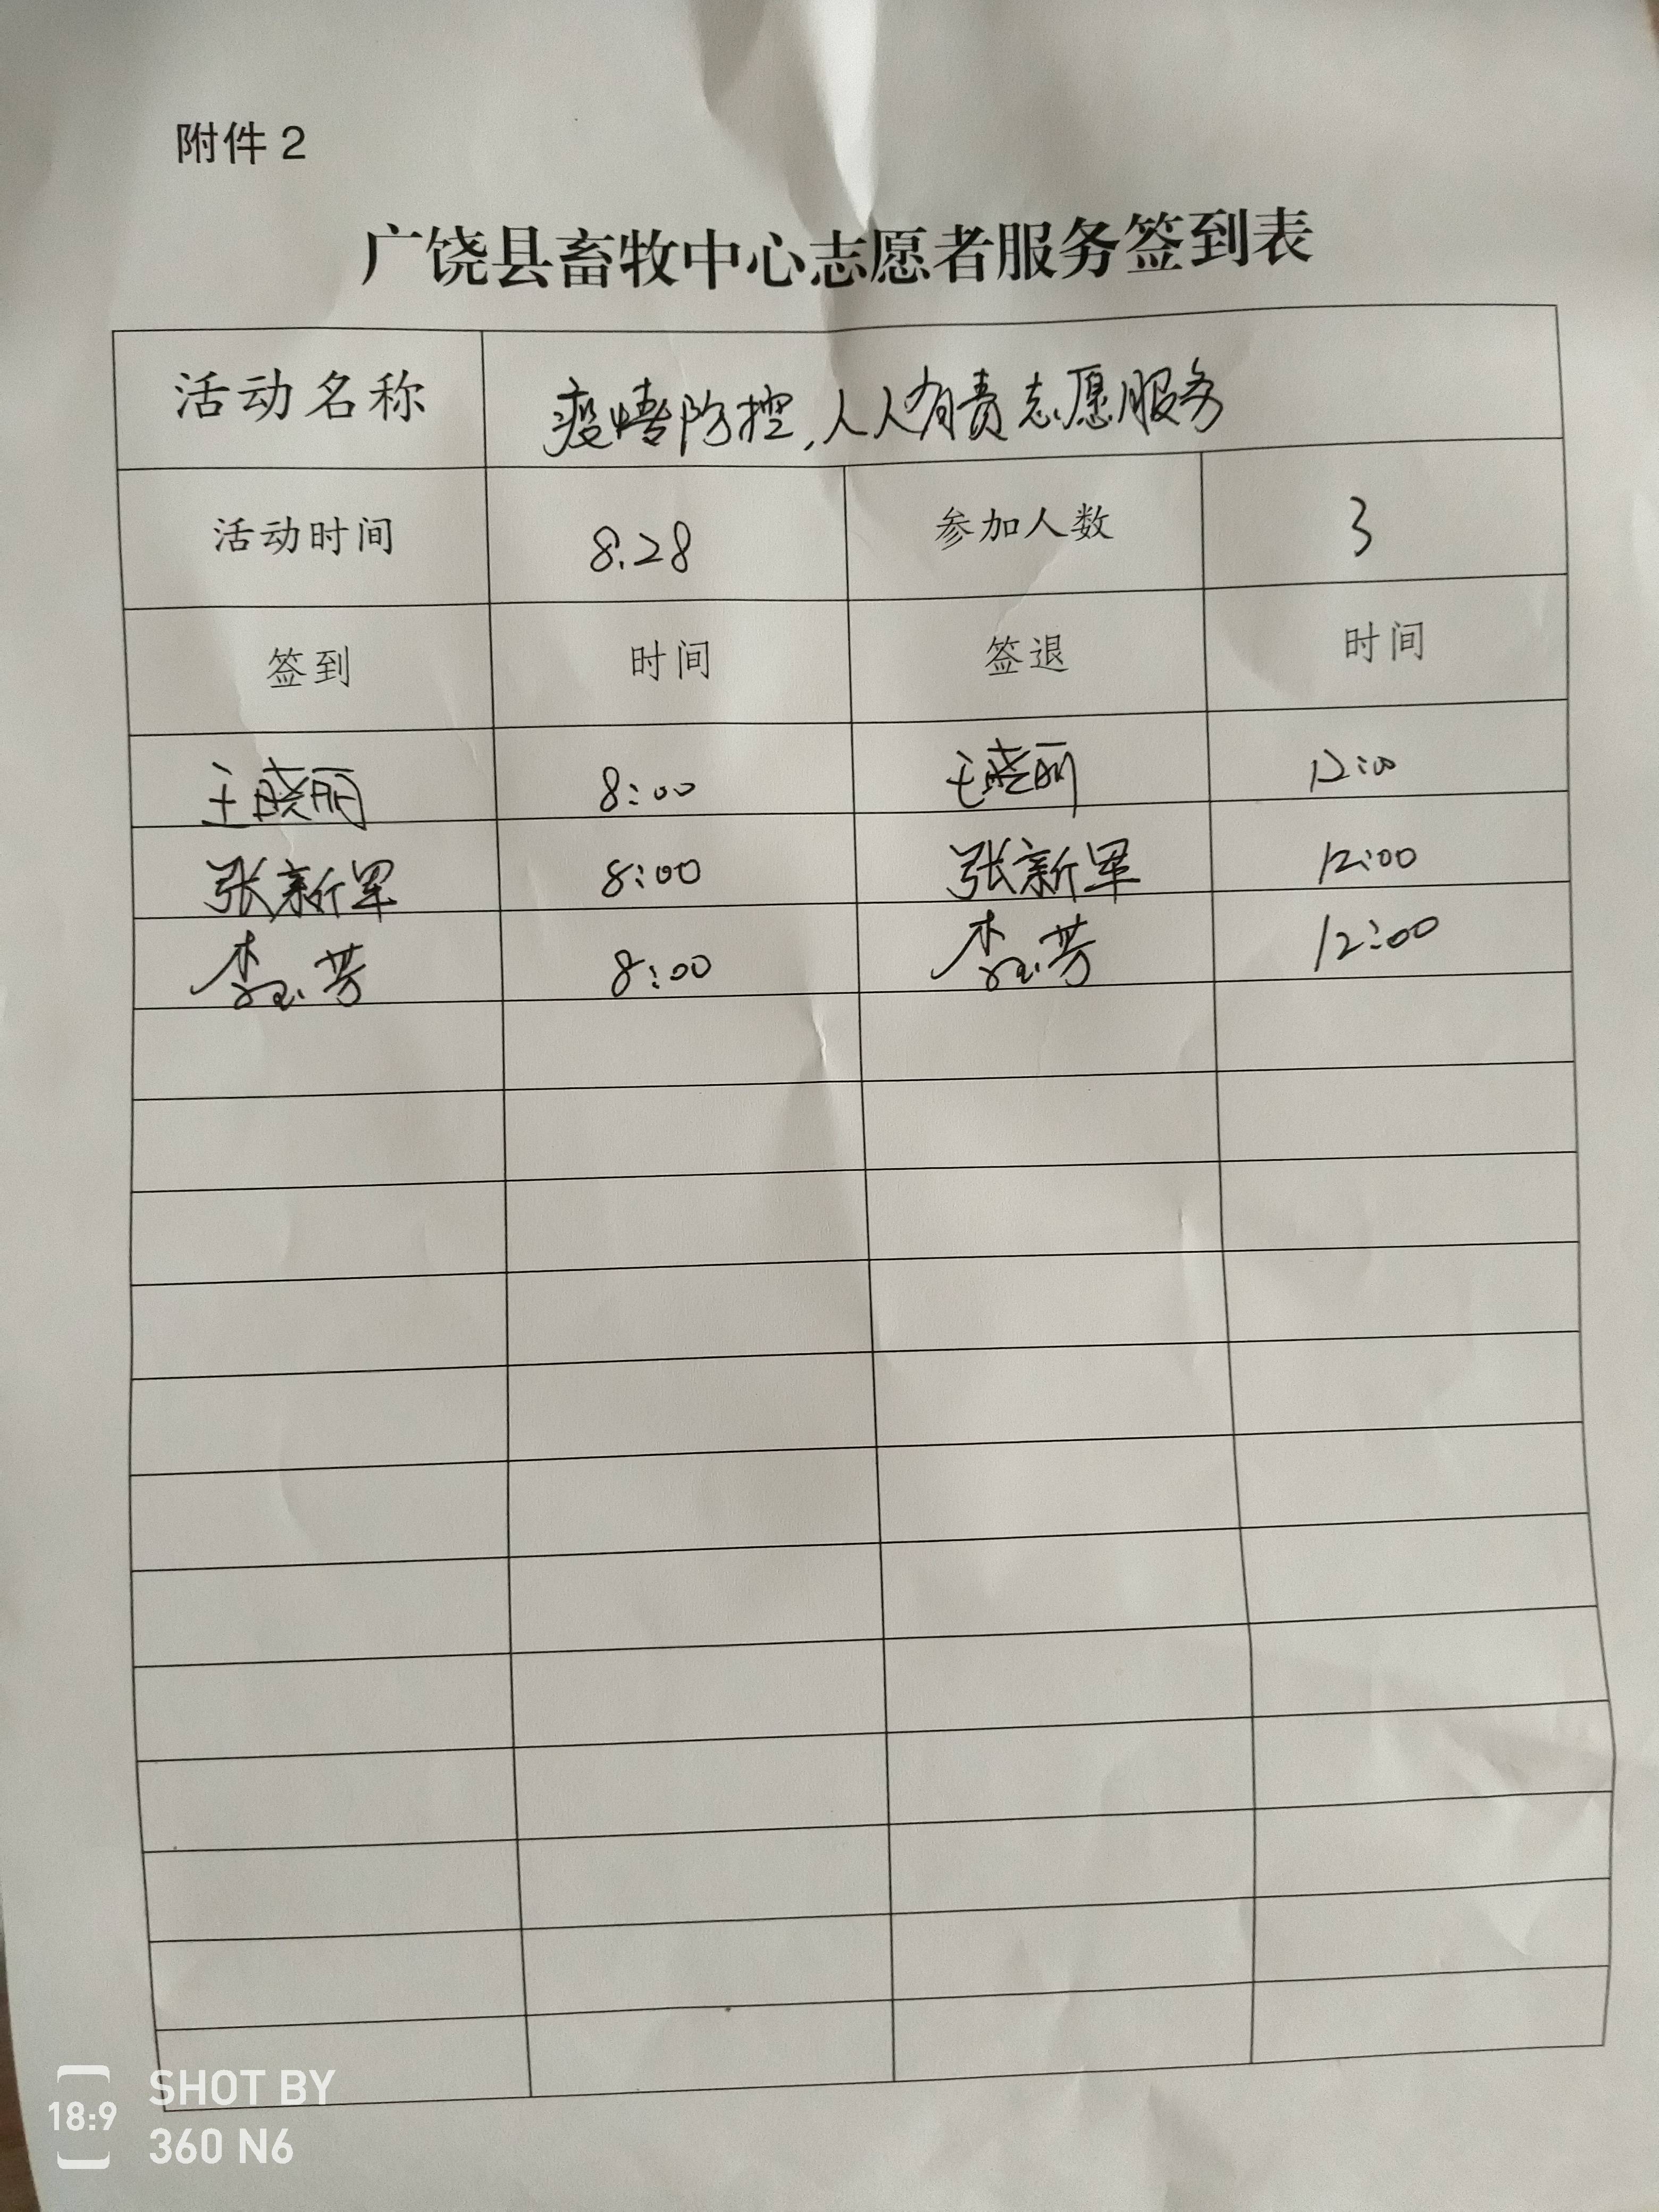 附件2
广饶县畜牧中心志愿者服务签到表
活动名称 疫情防控,人人有责志愿服务
活动时间 8.28 参加人数 3
签到 时间 签退 时间
王晓丽 8:00 王晓丽 12:00
张新军 8:00 张新军 12:00
李玉芳 8:00 李玉芳 12:00
18:9 SHOT BY
360 N6